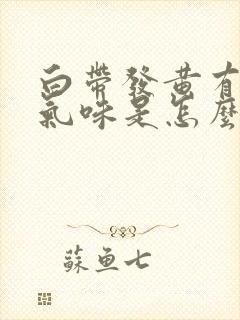 白帶發黃有
氣味是怎麼
蘇魚七